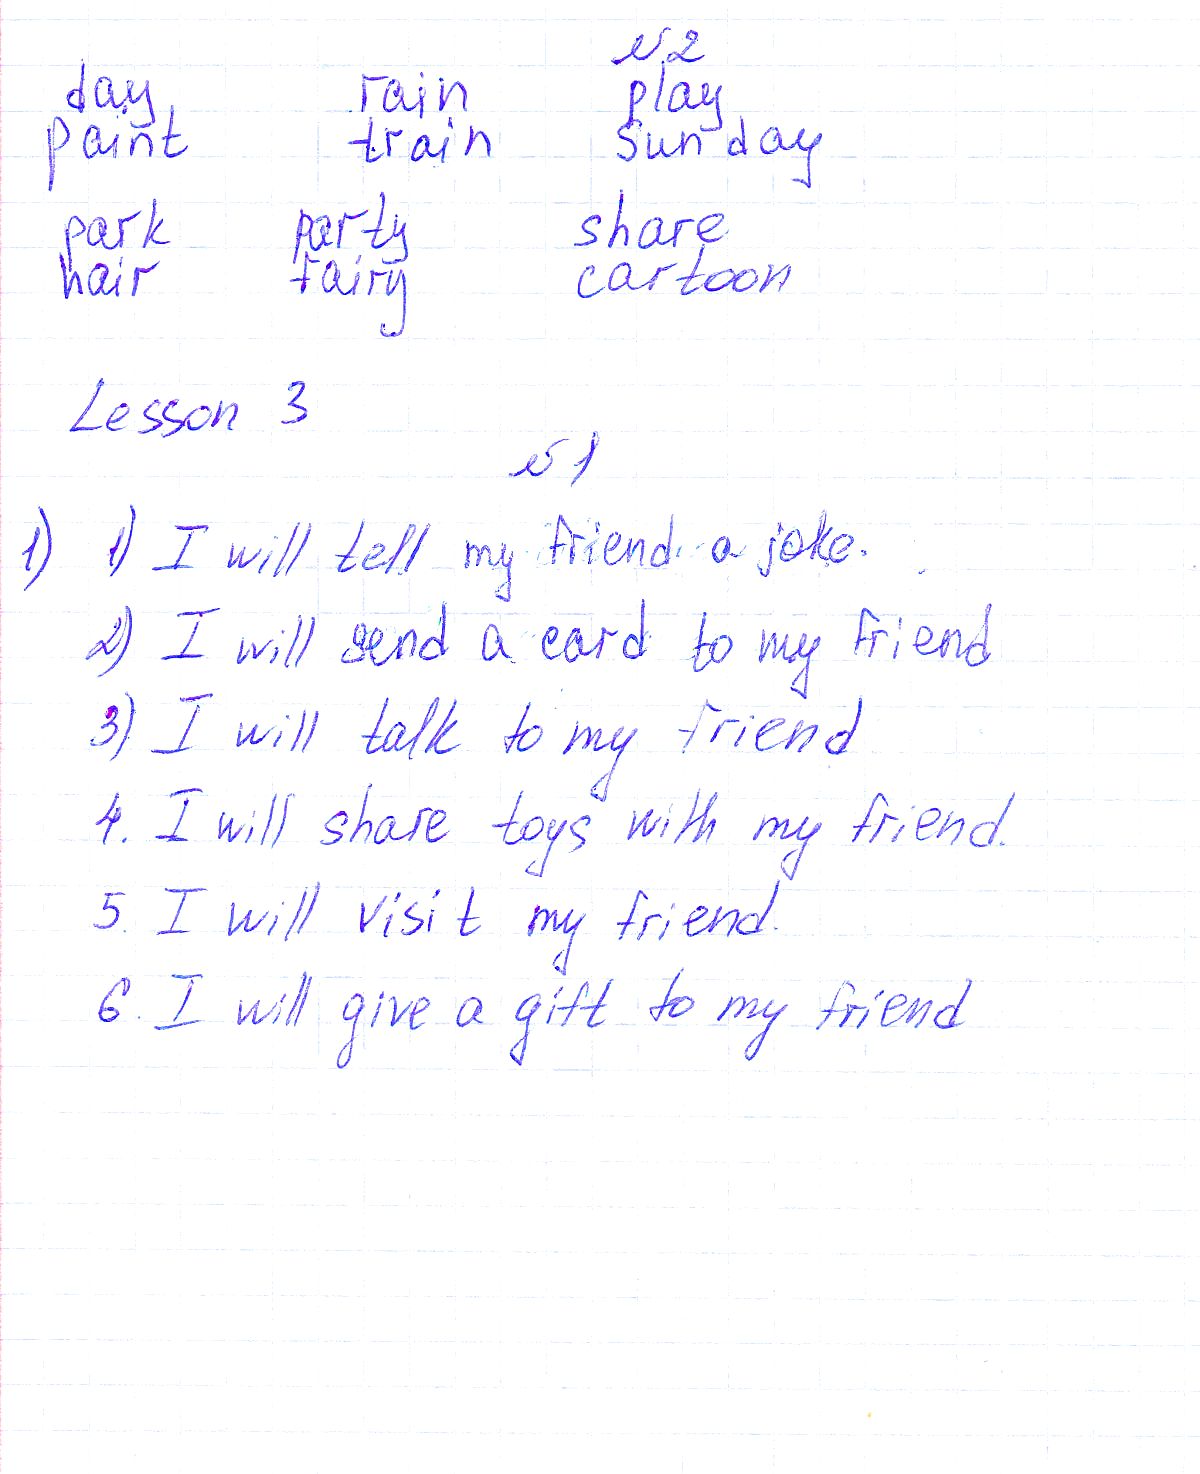 №2
day rain play
paint train Sunday
park party share
hair fairy cartoon
Lesson 3
№1
1) 1) I will tell my friend a joke.
2) I will send a card to my friend
3) I will talk to my friend
4. I will share toys with my friend.
5. I will visit my friend.
6. I will give a gift to my friend